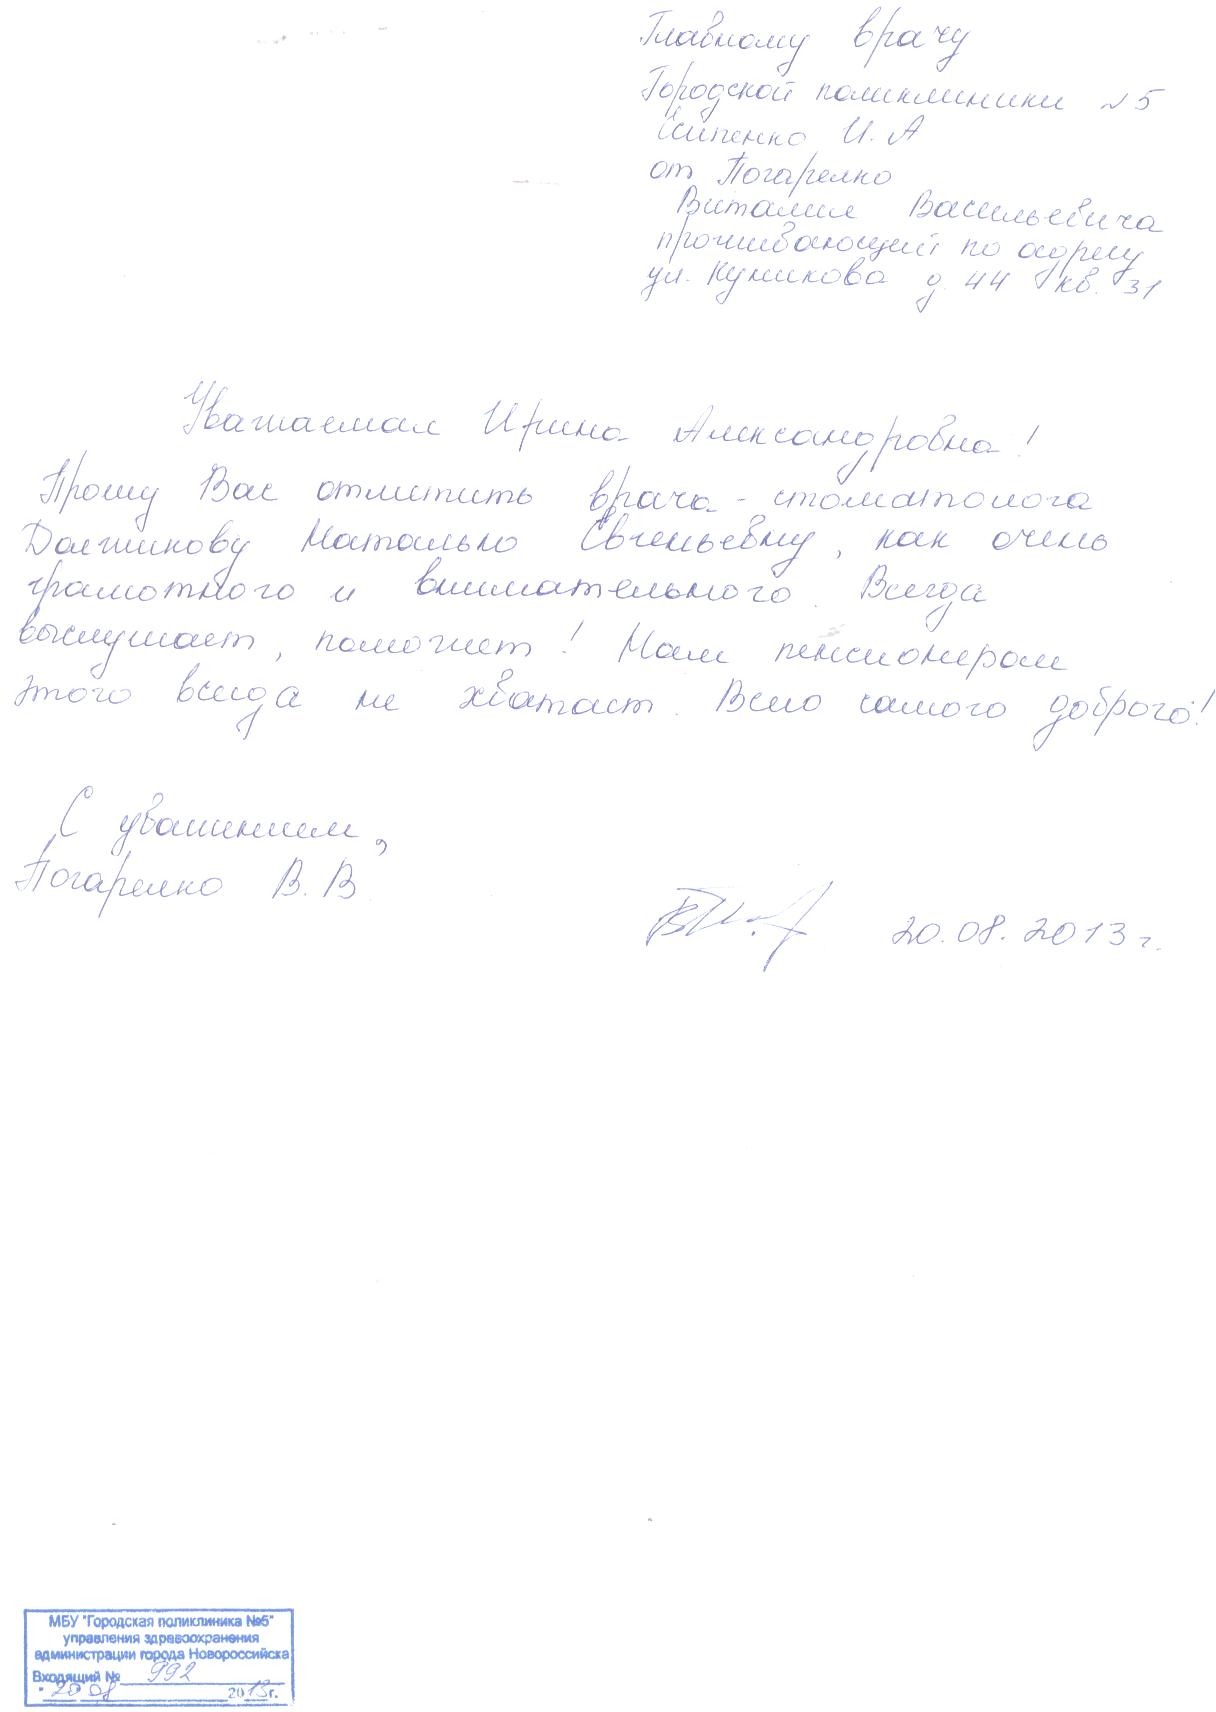 Главному врачу
Городской поликлиники №5
И.А
от Погарелко
Виталия Васильевича
проживающий по адресу
ул. Куникова д 44 кв. 31
Уважаемая Ирина Александровна!
Прошу Вас отметить врача-стоматолога
Должикову Наталью Евгеньевну, как очень
грамотного и внимательного. Всегда
выслушает, поможет! Нам пенсионерам
этого всегда не хватает. Всего самого доброго!
С уважением,
Погарелко В. В
20.08.2013 г.
МБУ "Городская поликлиника №5"
управления здравоохранения
администрации города Новороссийска
Входящий № 992
"20" 08 2013г.